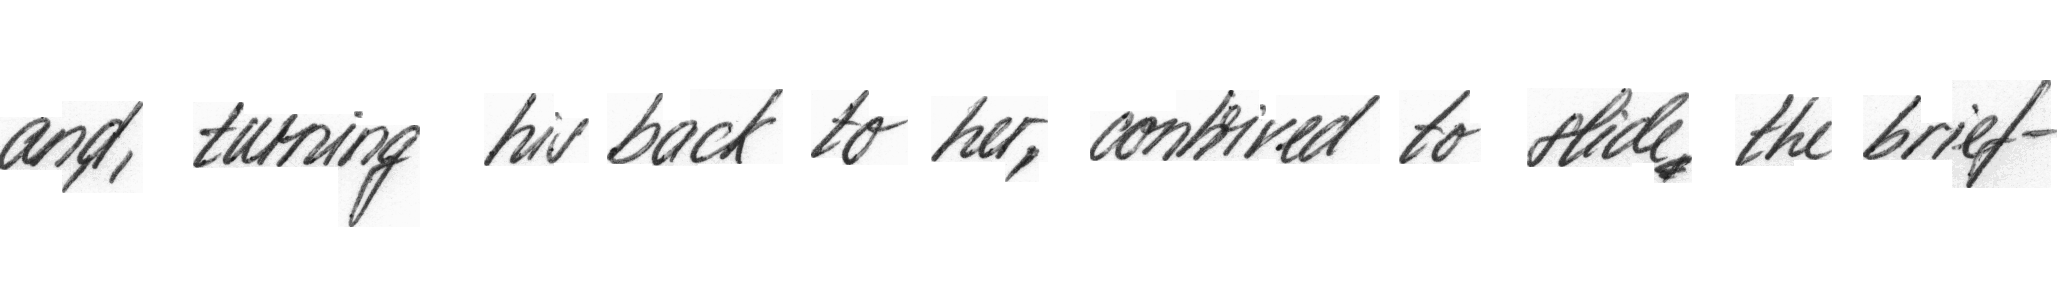 and, turning his back to her, contrived to slide the brief-